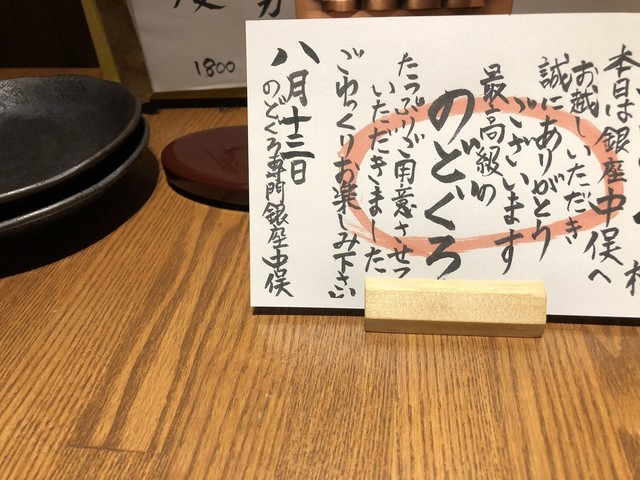 本日は銀座中俣へ
お越しいただき
誠にありがとう
ございます
最高級の
のどぐろ
たっぷりご用意させて
いただきました
ごゆっくりお楽しみ下さい
八月十三日
のどぐろ専門銀座中俣
1800